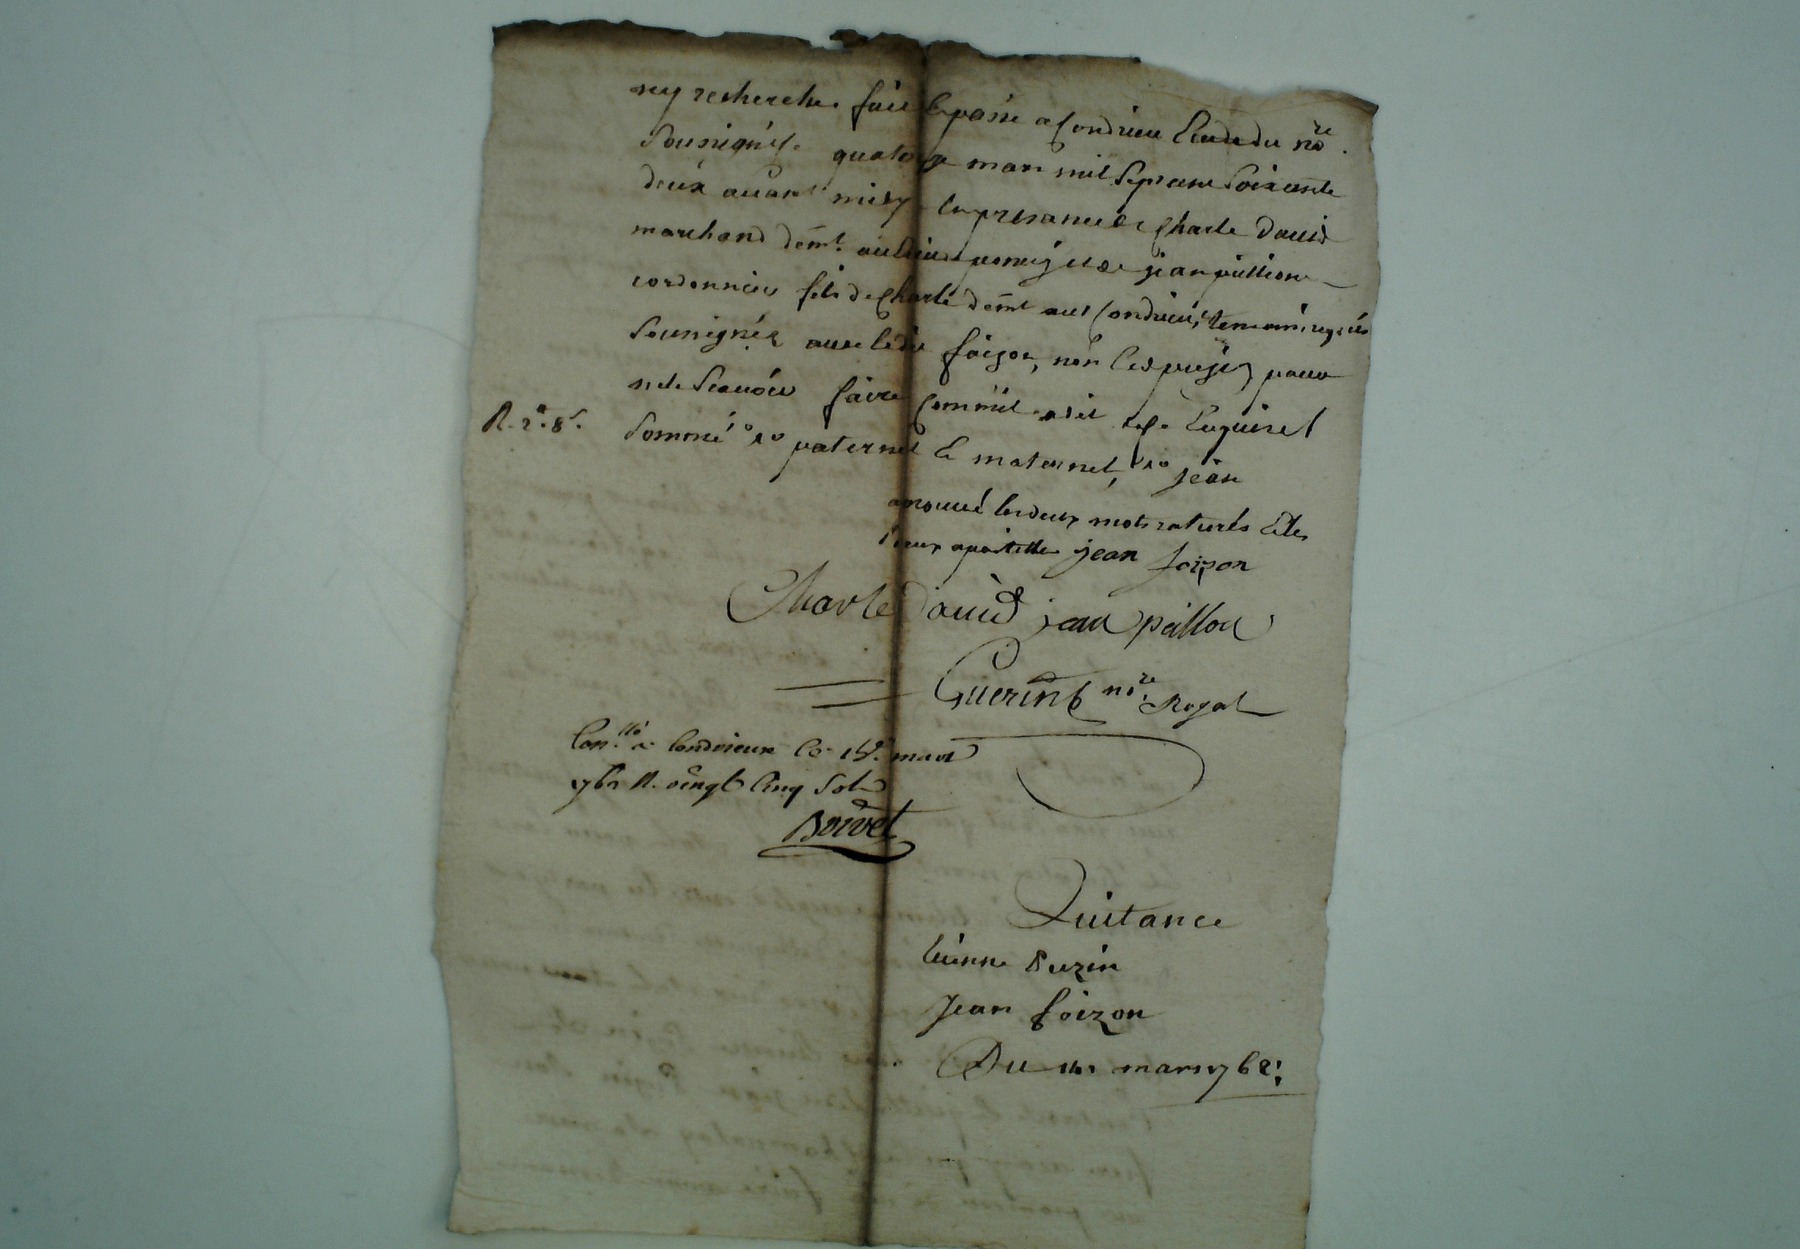 ny recherche. fait & passé a Condrieu Etude du nore.
Sousigné le quatorze mars mil sept cent soixante
deux avant midy en presance de Charle David
marchand demt. au lieu et de jean pillion
cordonnier fils de Charle demt aud Condrieu, temoins requis
Sousignés avec ledit foizon, non les purgin pour
ne le scavoir faire comme a dit de ce Enquis et
R. 2a. 8s. sommé ./. paternel & maternel, ./. jean
aprouvé les deux mots raturés & les
deux apostilles jean foizon
Charle David jean pillon
Guerin nore. Royal
Conllé a Condrieux le 15e. mars
1762 R. vingt cinq sols
Boivet
Quitance
Etienne Purzin
Jean foizon
Du 14 mars 1762